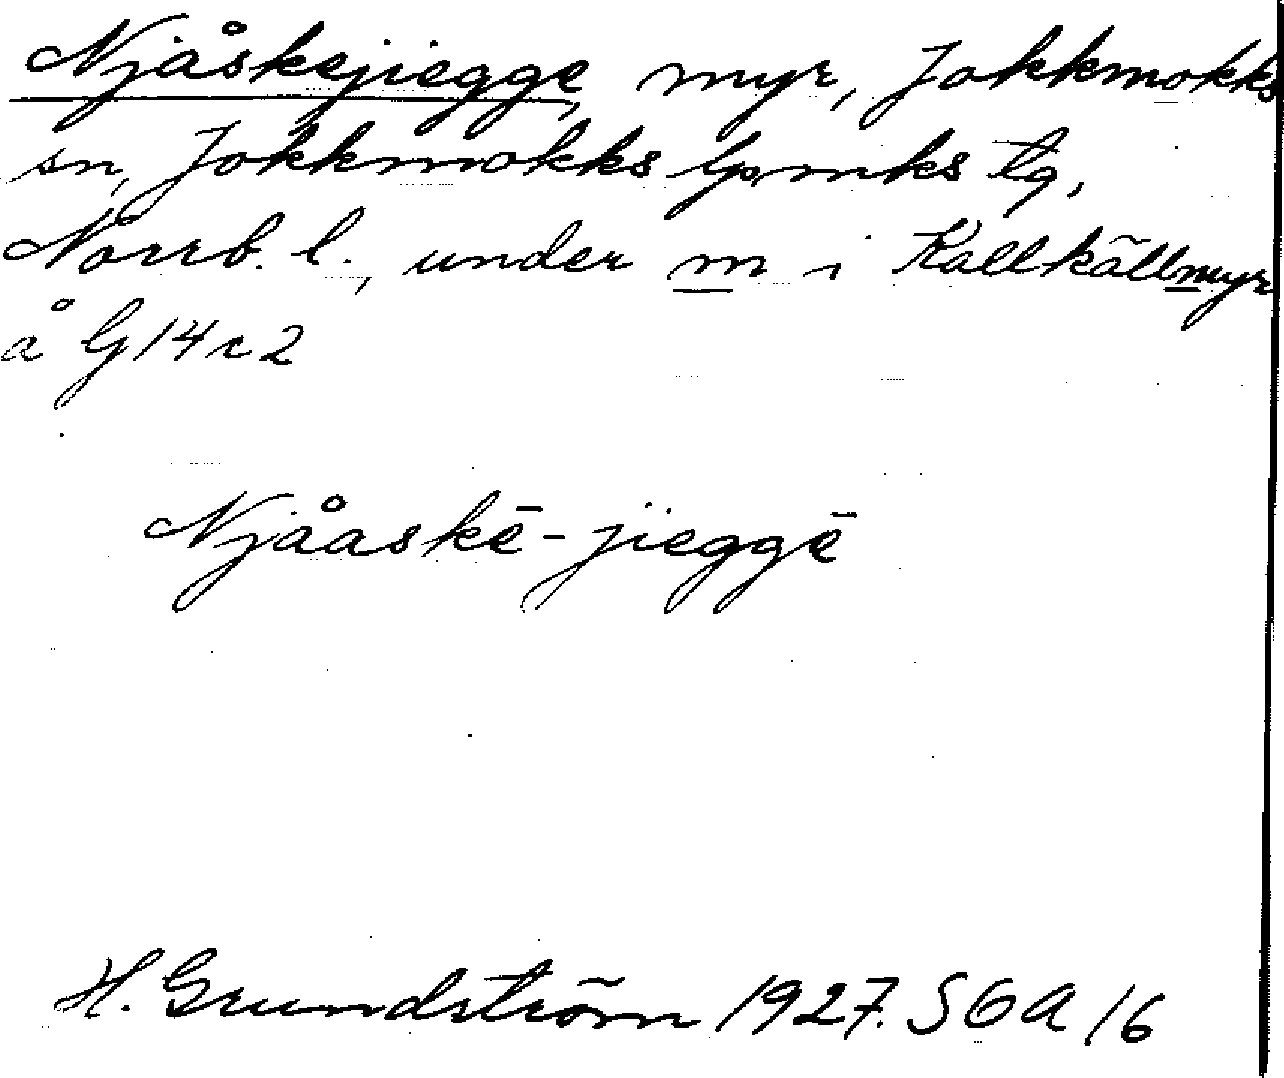 Njåskejiegge, myr, Jokkmokks
sn, Jokkmokks lpmks tg,
Norrb. l., under m i Kallkällmyr
å G14r2
Njåaskē-jieggē
H. Grundström 1927. SGA 16